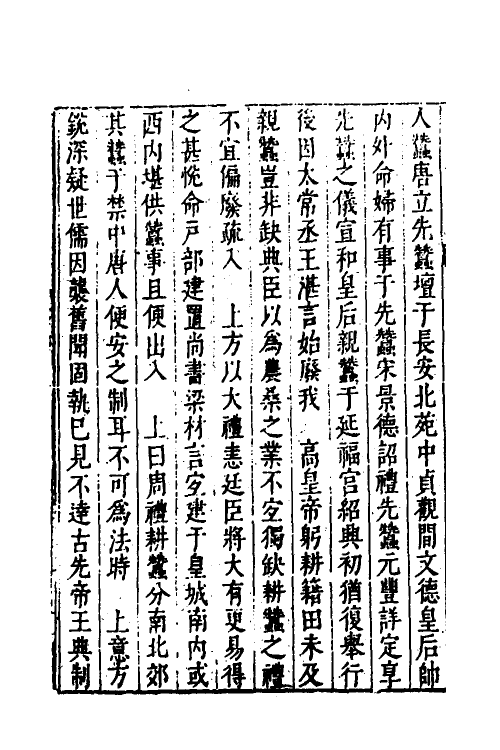 人蠶唐立先蠶壇于長安北苑中貞觀間文德皇后帥
內外命婦有事于先蠶宋景德詔禮先蠶元豐詳定享
先蠶之儀宣和皇后親蠶于延福宮紹興初猶復舉行
後因太常丞王湛言始廢我　高皇帝躬耕籍田未及
親蠶豈非缺典臣以為農桑之業不宜獨缺耕蠶之禮
不宜偏廢疏入　上方以大禮恚廷臣將大有更易得
之甚悅命戶部建置尚書梁材言宜建于皇城南內或
西內堪供蠶事且便出入　上曰周禮耕蠶分南北郊
其蠶于禁中唐人便安之制耳不可為法時　上意方
銳深疑世儒因襲舊聞固執巳見不達古先帝王典制